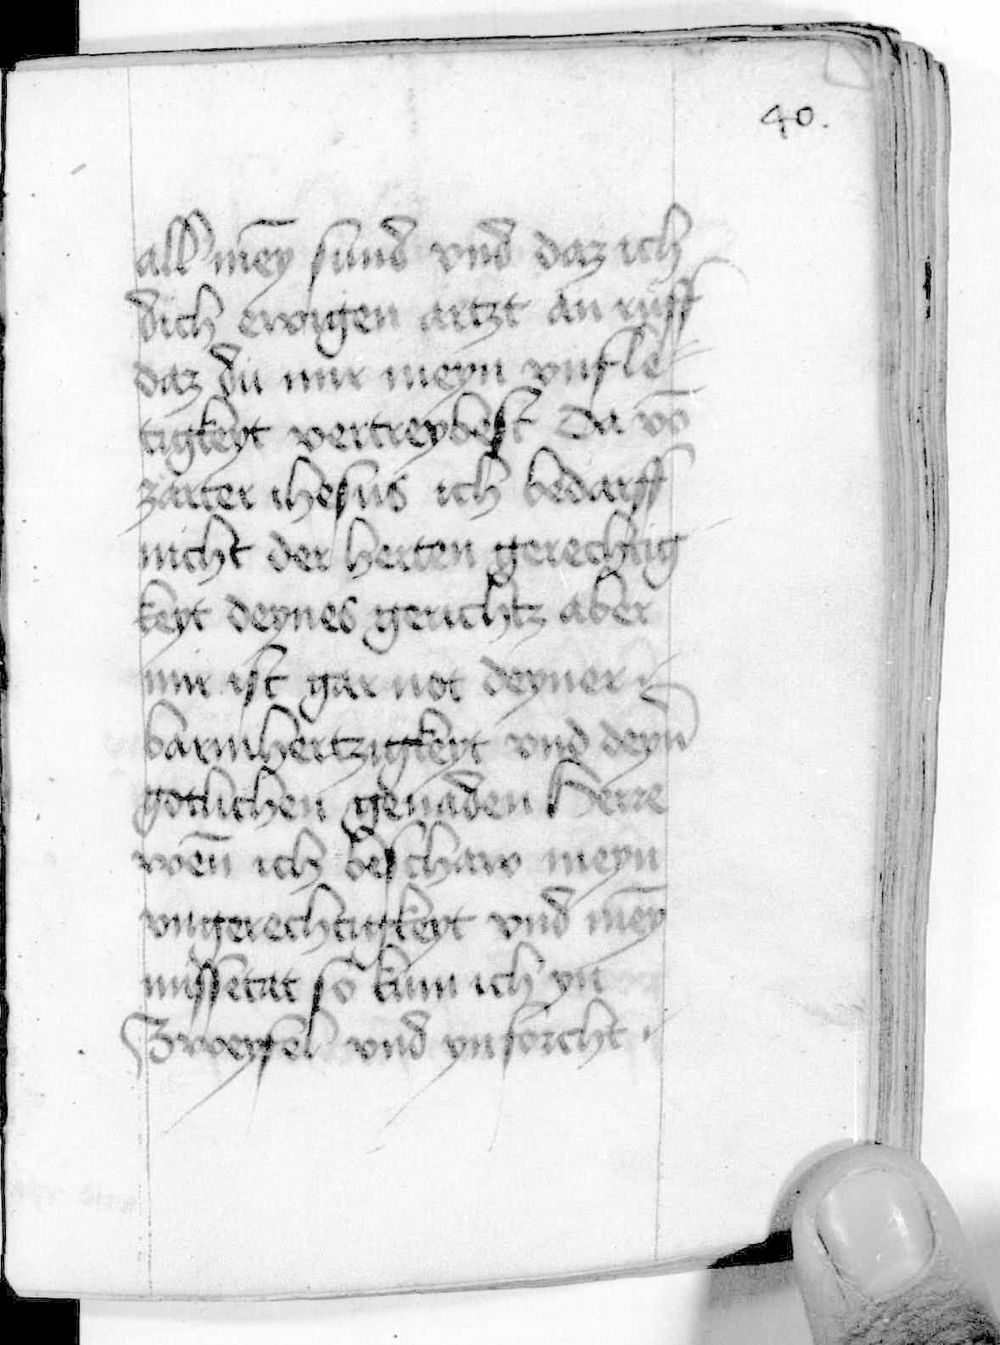 40.
all mēy sund vnd daz ich
dich ewigen artzt an ruff
daz du mir meyn vnfle
tigkeyt vertreybest Da vō
zarter ihesus ich bedarff
nicht der herten gerechtig
keyt deynes gerichtz aber
mir ist gar not deyner
barmhertzigkeyt vnd deyn̄
gotlichen genaden Herre
wen̄ ich beschaw meyn
vngerechtigkeyt vnd mēy
missetat so kum ich yn
Zweyfel vnd yn forcht ·